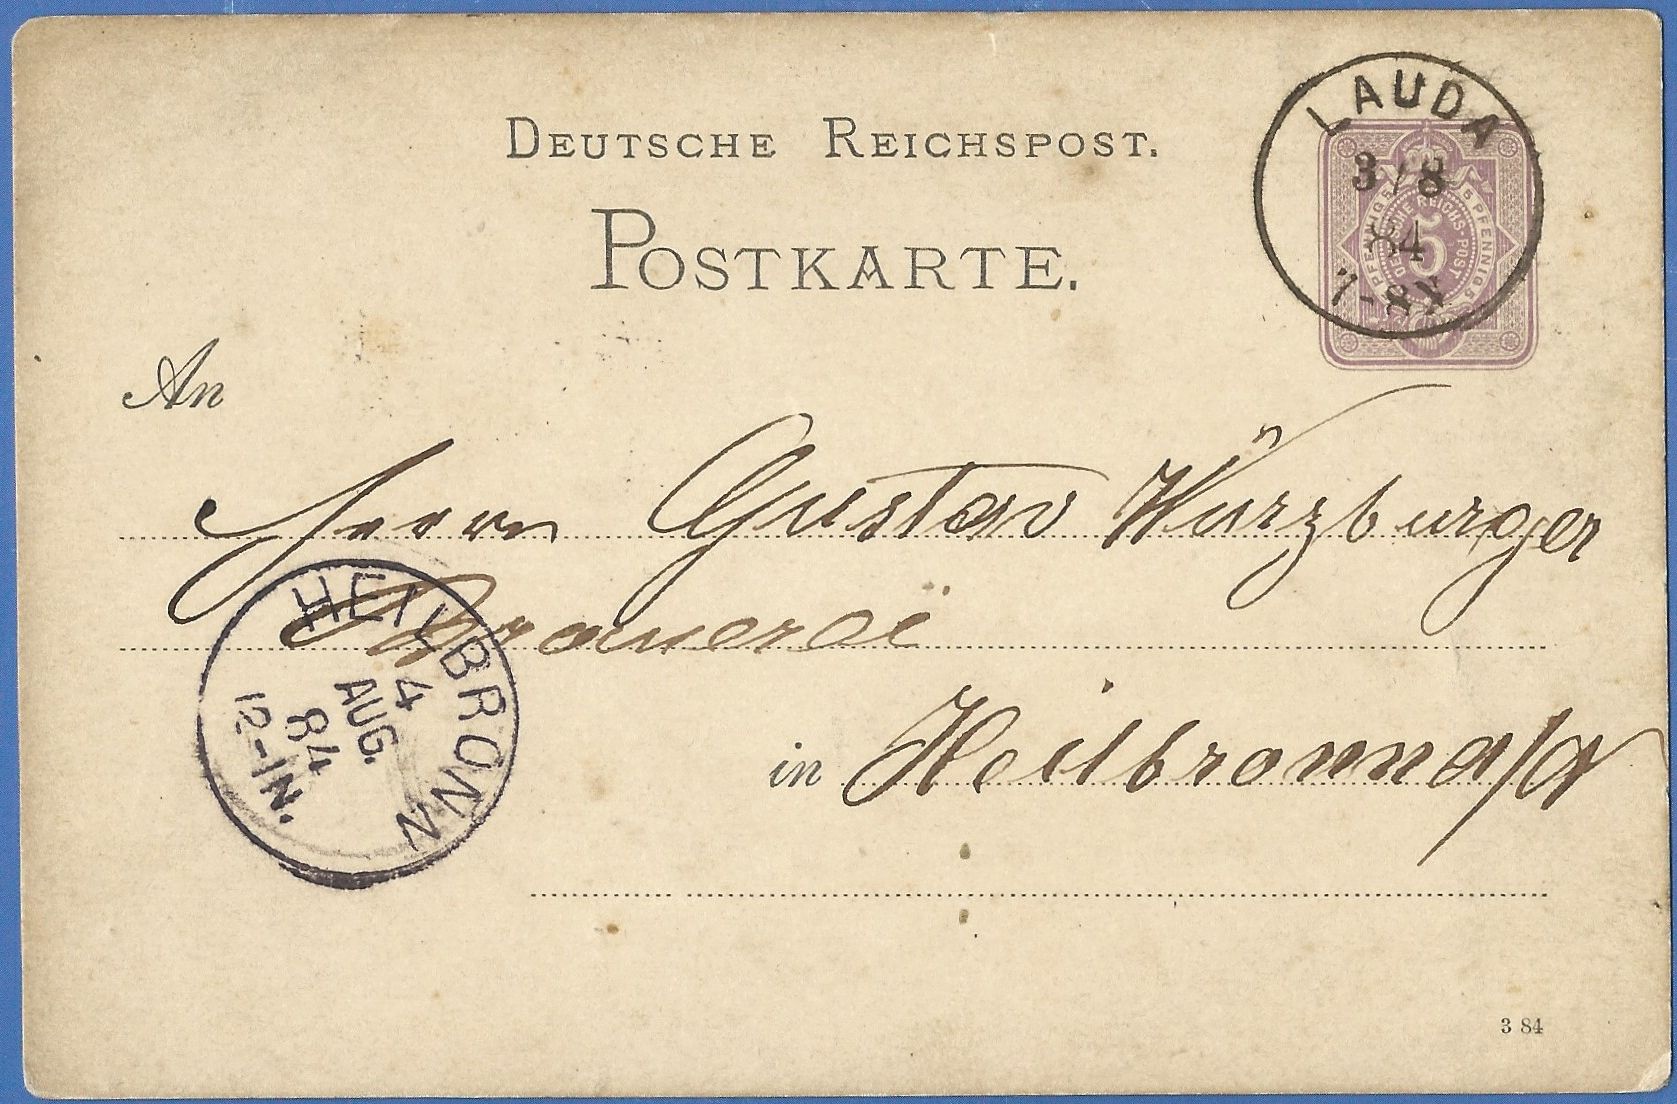 DEUTSCHE REICHSPOST.
POSTKARTE.
LAUDA
3/8
84
7-8N
5 PFENNIG 5 PFENNIG
DEUTSCHE REICHS-POST
5
An
Herrn Gustav Würzburger
Brauerei
in Heilbronn a/N
HEILBRONN
4
AUG.
84
12-1N.
3 84